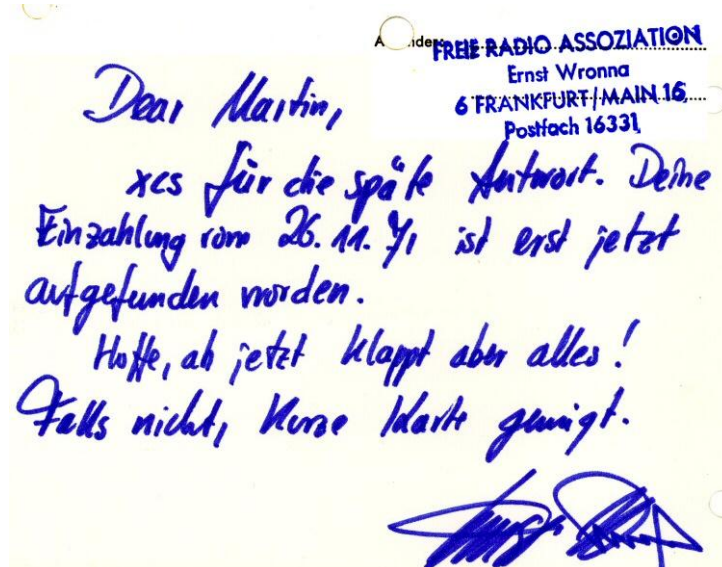 FREIE RADIO ASSOZIATION
Ernst Wronna
6 FRANKFURT/MAIN 16,
Postfach 16331,
Dear Martin,
xcs für die späte Antwort. Deine
Einzahlung vom 26.11.71 ist erst jetzt
aufgefunden worden.
Hoffe, ab jetzt klappt aber alles!
Falls nicht, kurze Karte genügt.